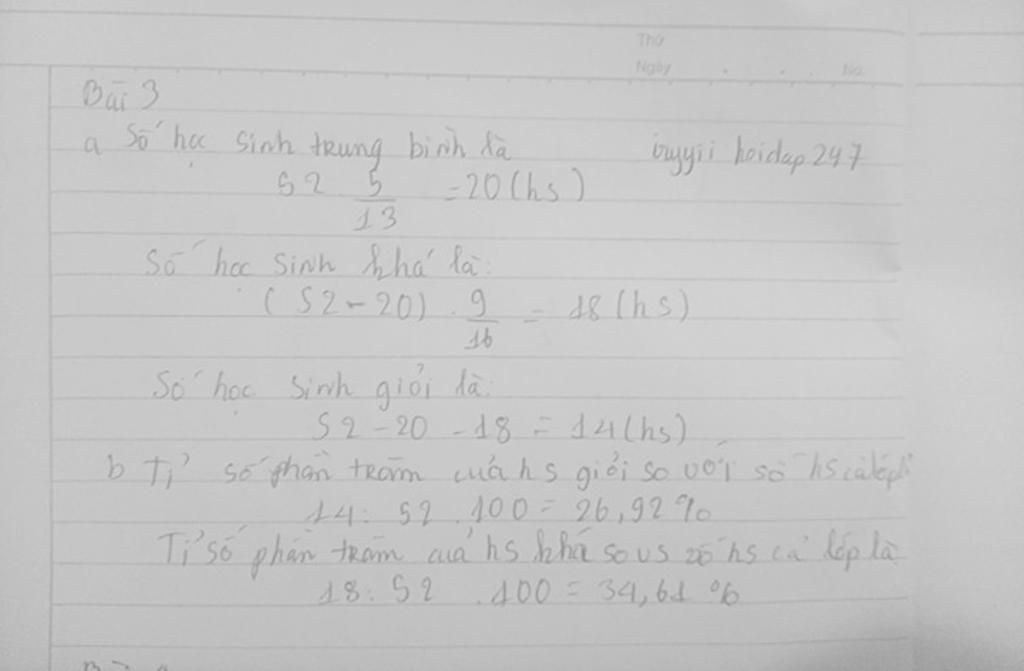 Thứ
Ngày . . No.
Bài 3
a Số học sinh trung bình là
iuyyii hoidap247
52 5/13 = 20 (hs)
Số học sinh khá là:
(52 - 20) . 9/16 = 18 (hs)
Số học sinh giỏi là:
52 - 20 - 18 = 14 (hs)
b Tỉ số phần trăm của hs giỏi so với số hs cả lớp là
14 : 52 . 100 = 26,92 %
Tỉ số phần trăm của hs khá so vs số hs cả lớp là
18 : 52 . 100 = 34,61 %